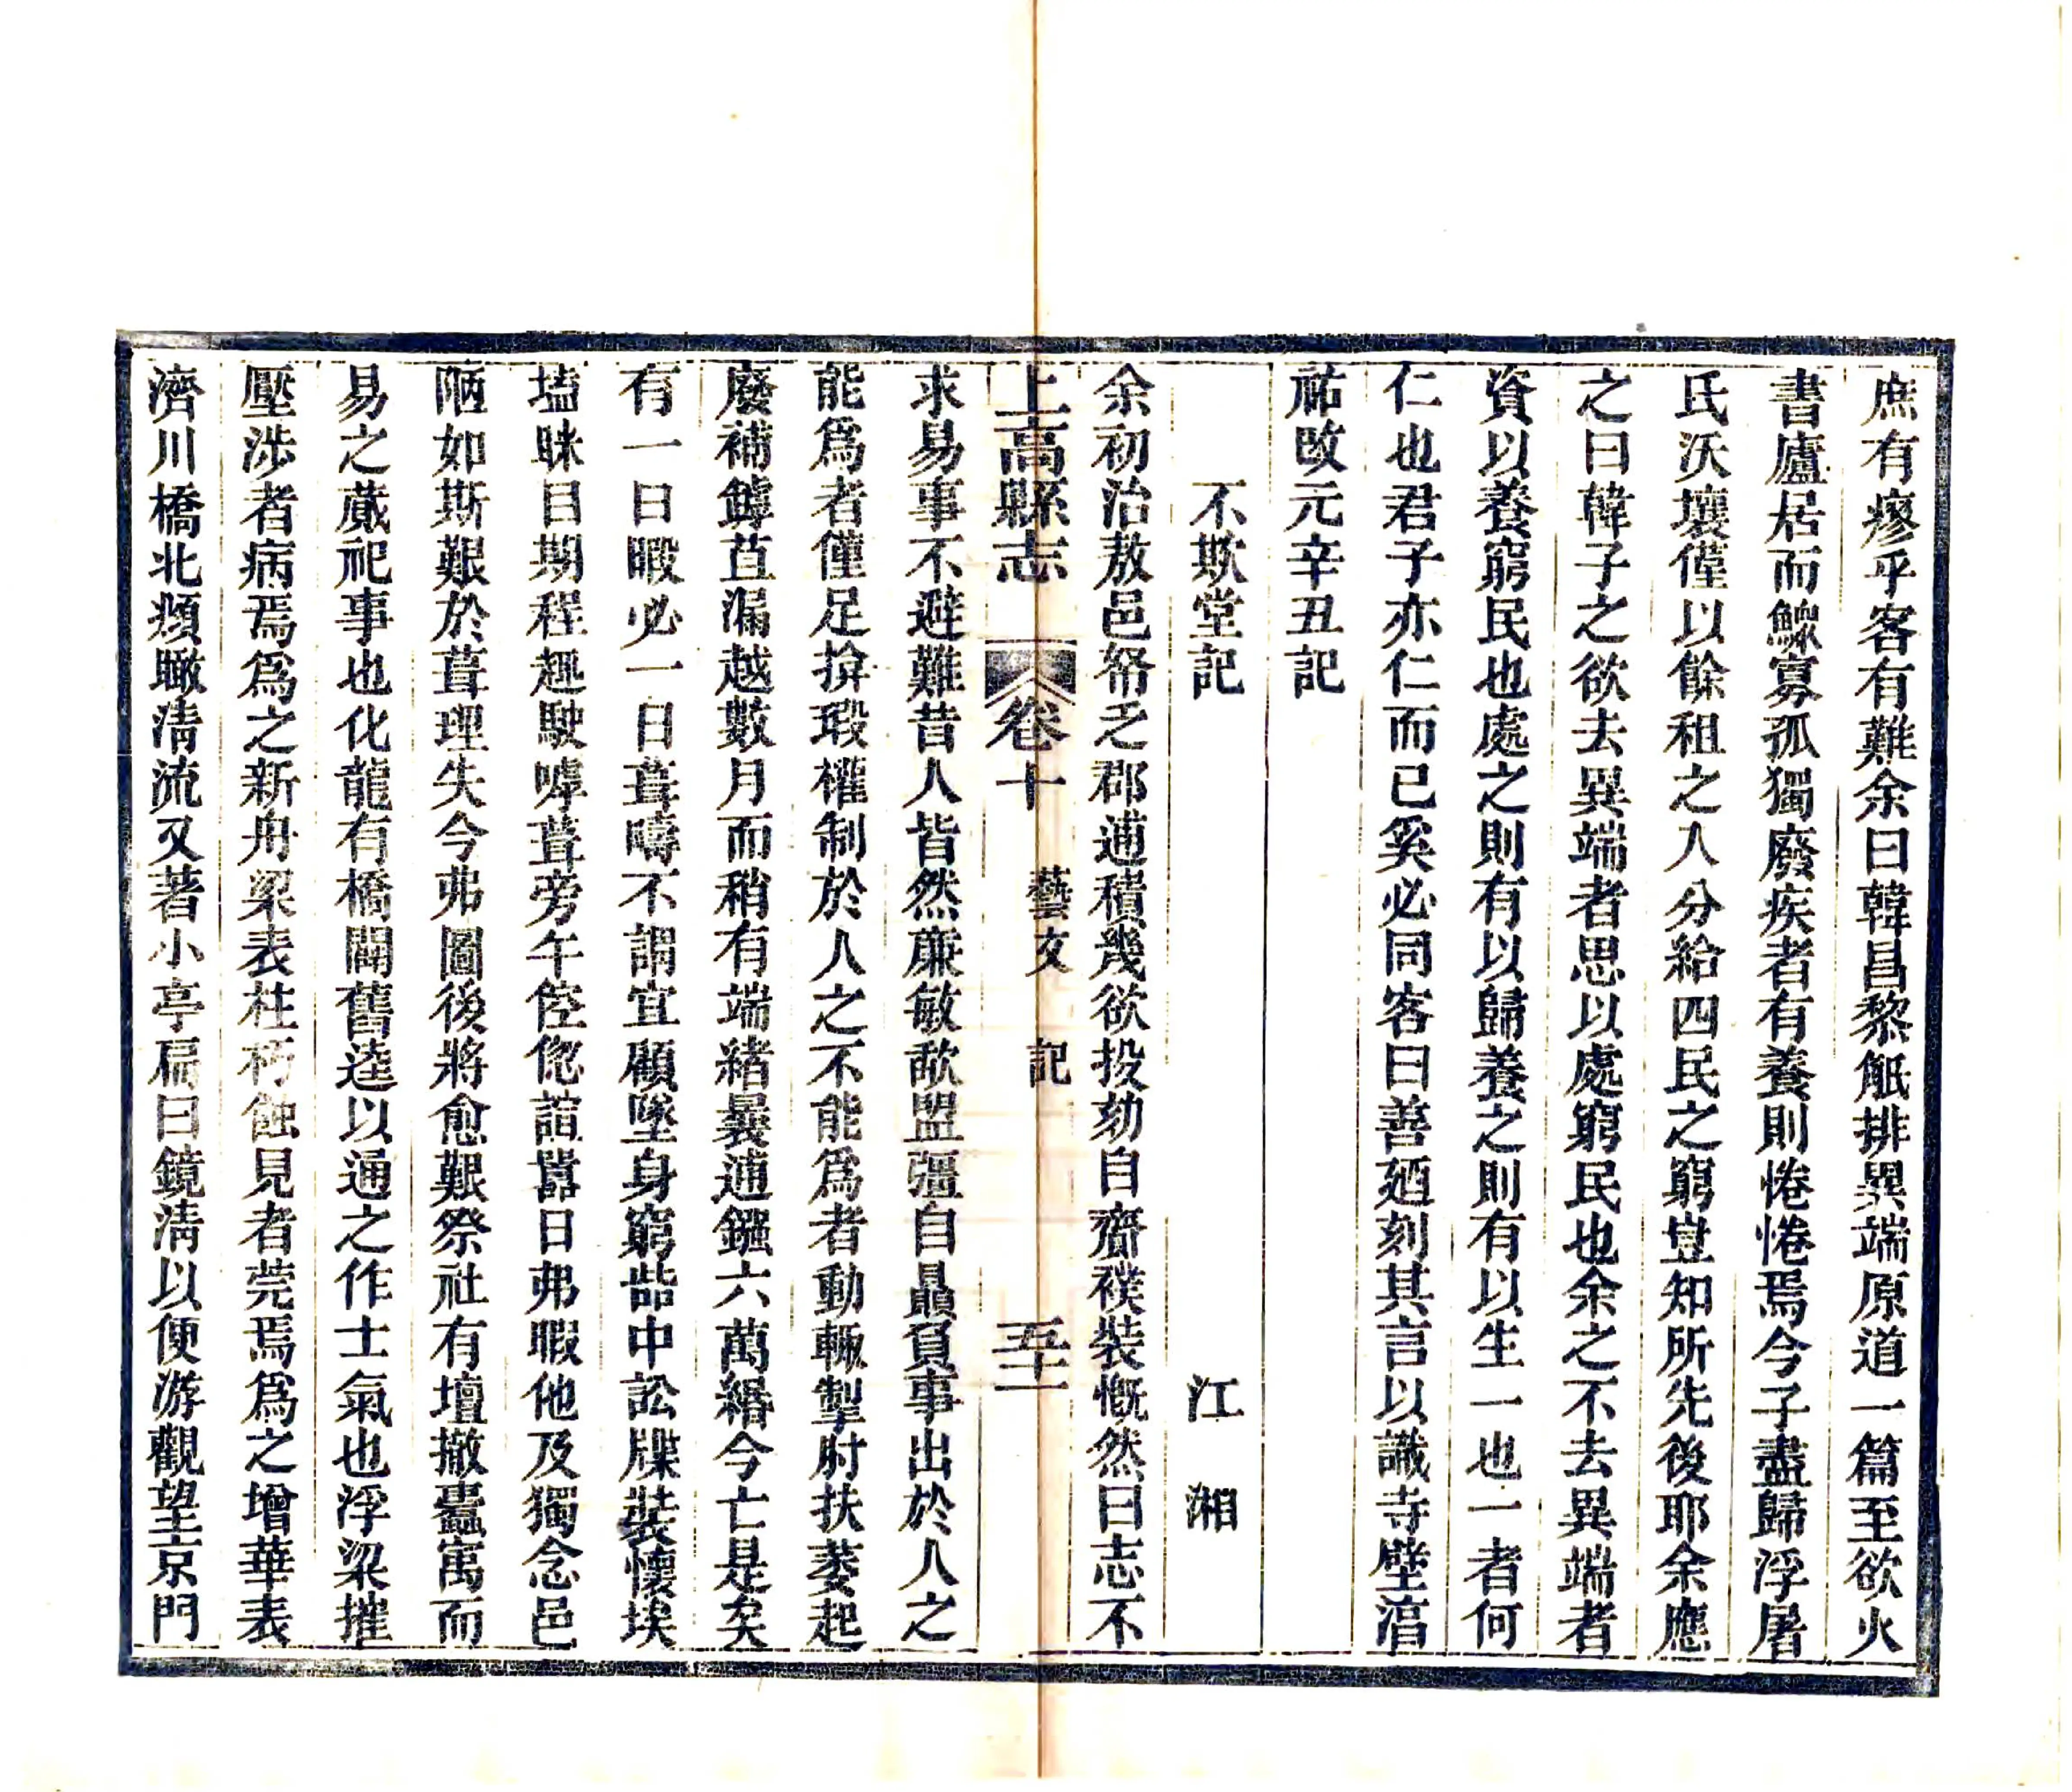 庶有瘳乎客有難余曰韓昌黎觝排異端原道一篇至欲火
書廬居而鰥寡孤獨廢疾者有養則惓惓焉今子盡歸浮屠
氏沃壤僅以餘租之人分給四民之窮豈知所先後耶余應
之曰韓子之欲去異端者思以處窮民也余之不去異端者
資以養窮民也處之則有以歸養之則有以生一也一者何
仁也君子亦仁而已奚必同客曰善廼刻其言以識寺壁湻
祐改元辛丑記
不欺堂記 江湘
余初治敖邑帑乏郡逋積幾欲投劾自齋襆裝慨然曰志不
上高縣志 卷十 藝文 記 五十一
求易事不避難昔人皆然廉敏歃盟彊自贔負事出於人之
能爲者僅足揜瑕權制於人之不能爲者動輒掣肘扶萎起
廢補罅苴漏越數月而稍有端緒曩逋鏹六萬緡今亡是矣
有一日暇必一日葺疇不謂宜顧墜身窮嵒中訟牒裝懷埃
壒眯目期程趣駛嘑葺旁午倥傯諠囂日弗暇他及獨念邑
陋如斯艱於葺理失今弗圖後將愈艱祭社有壇撤蠹寓而
易之蕆祀事也化龍有橋闢舊逵以通之作士氣也浮梁摧
壓涉者病焉爲之新舟梁表柱朽蝕見者莞焉爲之增華表
濟川橋北瀕瞰清流又著小亭扁曰鏡清以便游觀望京門